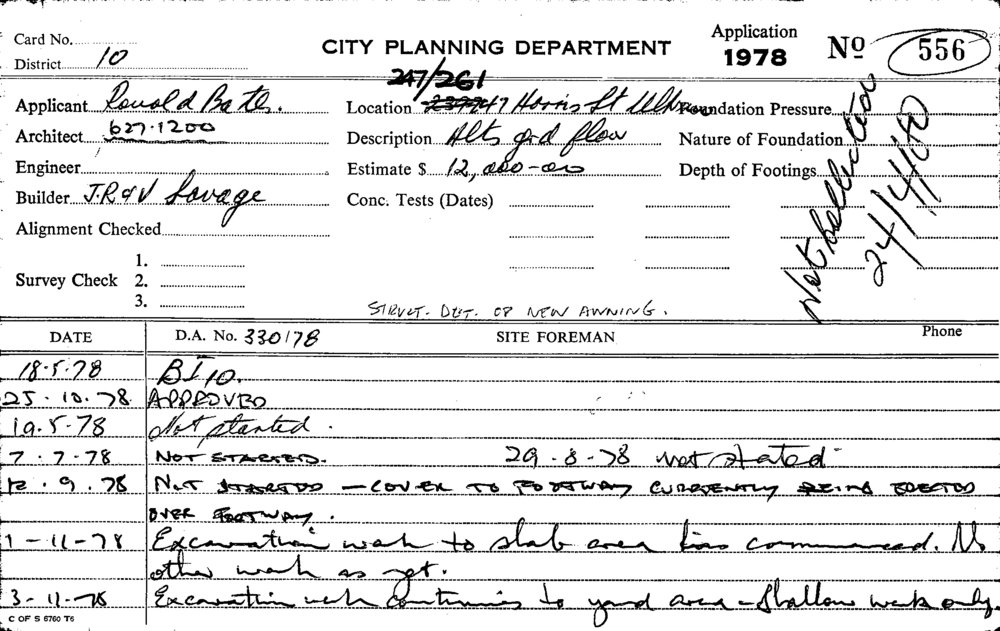 Card No.
CITY PLANNING DEPARTMENT
Application
1978
No 556
District 10
247/261
Applicant Ronald Bates.
Location 47 Harris St Ult
Foundation Pressure
Architect 627.1200
Description Alts grd floor
Nature of Foundation
Engineer
Estimate $ 12,000-00
Depth of Footings
Builder J.R & V Savage
Conc. Tests (Dates)
Alignment Checked
Not
24/4/80
Survey Check 1.
2.
3.
STRUCT. DET. OF NEW AWNING.
DATE
D.A. No. 330/78
SITE FOREMAN
Phone
18.5.78 BI 10.
25.10.78 APPROVED
19.5.78 Not started.
7.7.78 NOT STARTED. 29.8.78 not started
12.9.78 NOT STARTED - COVER TO FOOTWAY CURRENTLY BEING ERECTED
OVER FOOTWAY.
1-11-78 Excavation work to slab area has commenced. No
other work as yet.
3-11-78 Excavation work continuing to yard area - Shallow work only.
C OF S 6760 T6